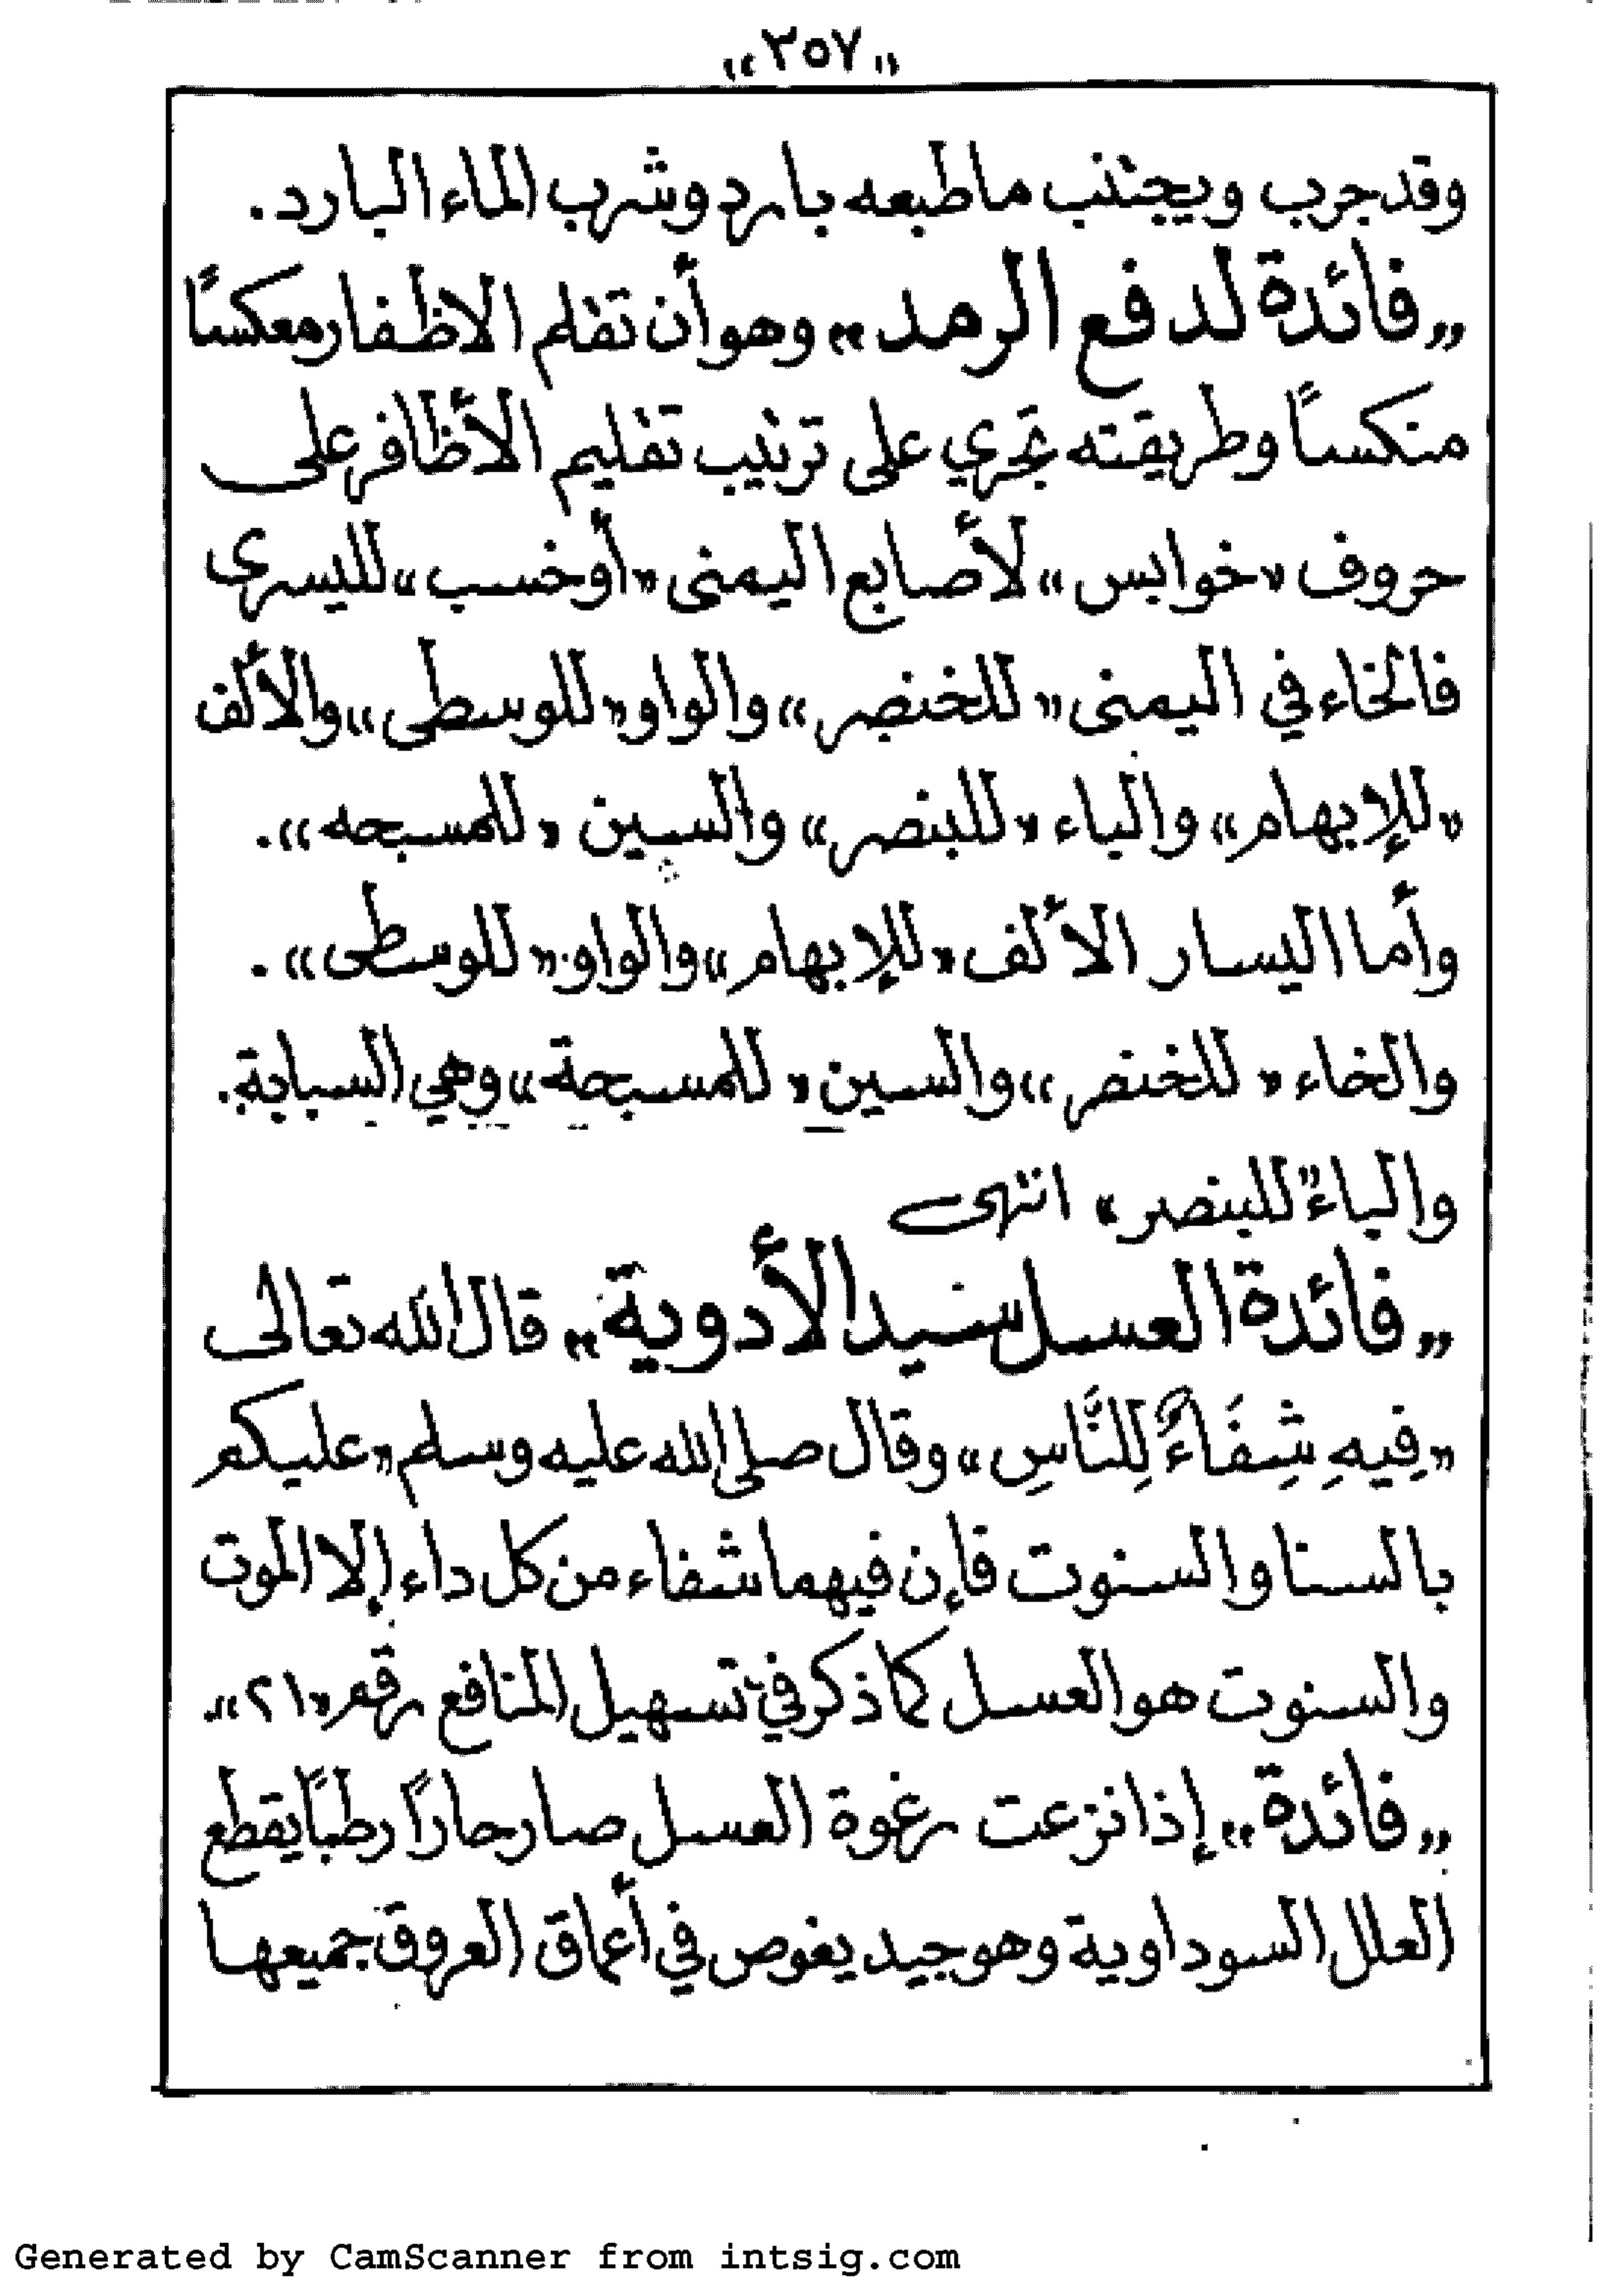 «٢٥٧»
وقد جرب ويجتنب ما طبعه بارد وشرب الماء البارد.
«فائدة لدفع الرمد» وهو أن تقلم الاظفار معكسًا
منكسًا وطريقته تجري على ترتيب تقليم الأظافر على
حروف «خوابس» لأصابع اليمنى «أوخسب» لليسرى
فالخاء في اليمنى «للخنصر» والواو «للوسطى» والألف
«للإبهام» والباء «للبنصر» والسين «للمسبحه».
وأما اليسار الألف «للإبهام» والواو «للوسطى».
والخاء «للخنصر» والسين «للمسبحة» وهي السبابة.
والباء «للبنصر» انتهى
«فائدة العسل سيد الأدوية» قال الله تعالى
«فِيهِ شِفَاءٌ لِلنَّاسِ» وقال صلى الله عليه وسلم «عليكم
بالسنا والسنوت فإن فيهما شفاء من كل داء إلا الموت
والسنوت هو العسل كما ذكر في تسهيل المنافع رقم «٢١».
«فائدة» إذا نزعت رغوة العسل صار حارًا رطبًا يقطع
العلل السوداوية وهو جيد يغوص في أعماق العروق جميعها
Generated by CamScanner from intsig.com